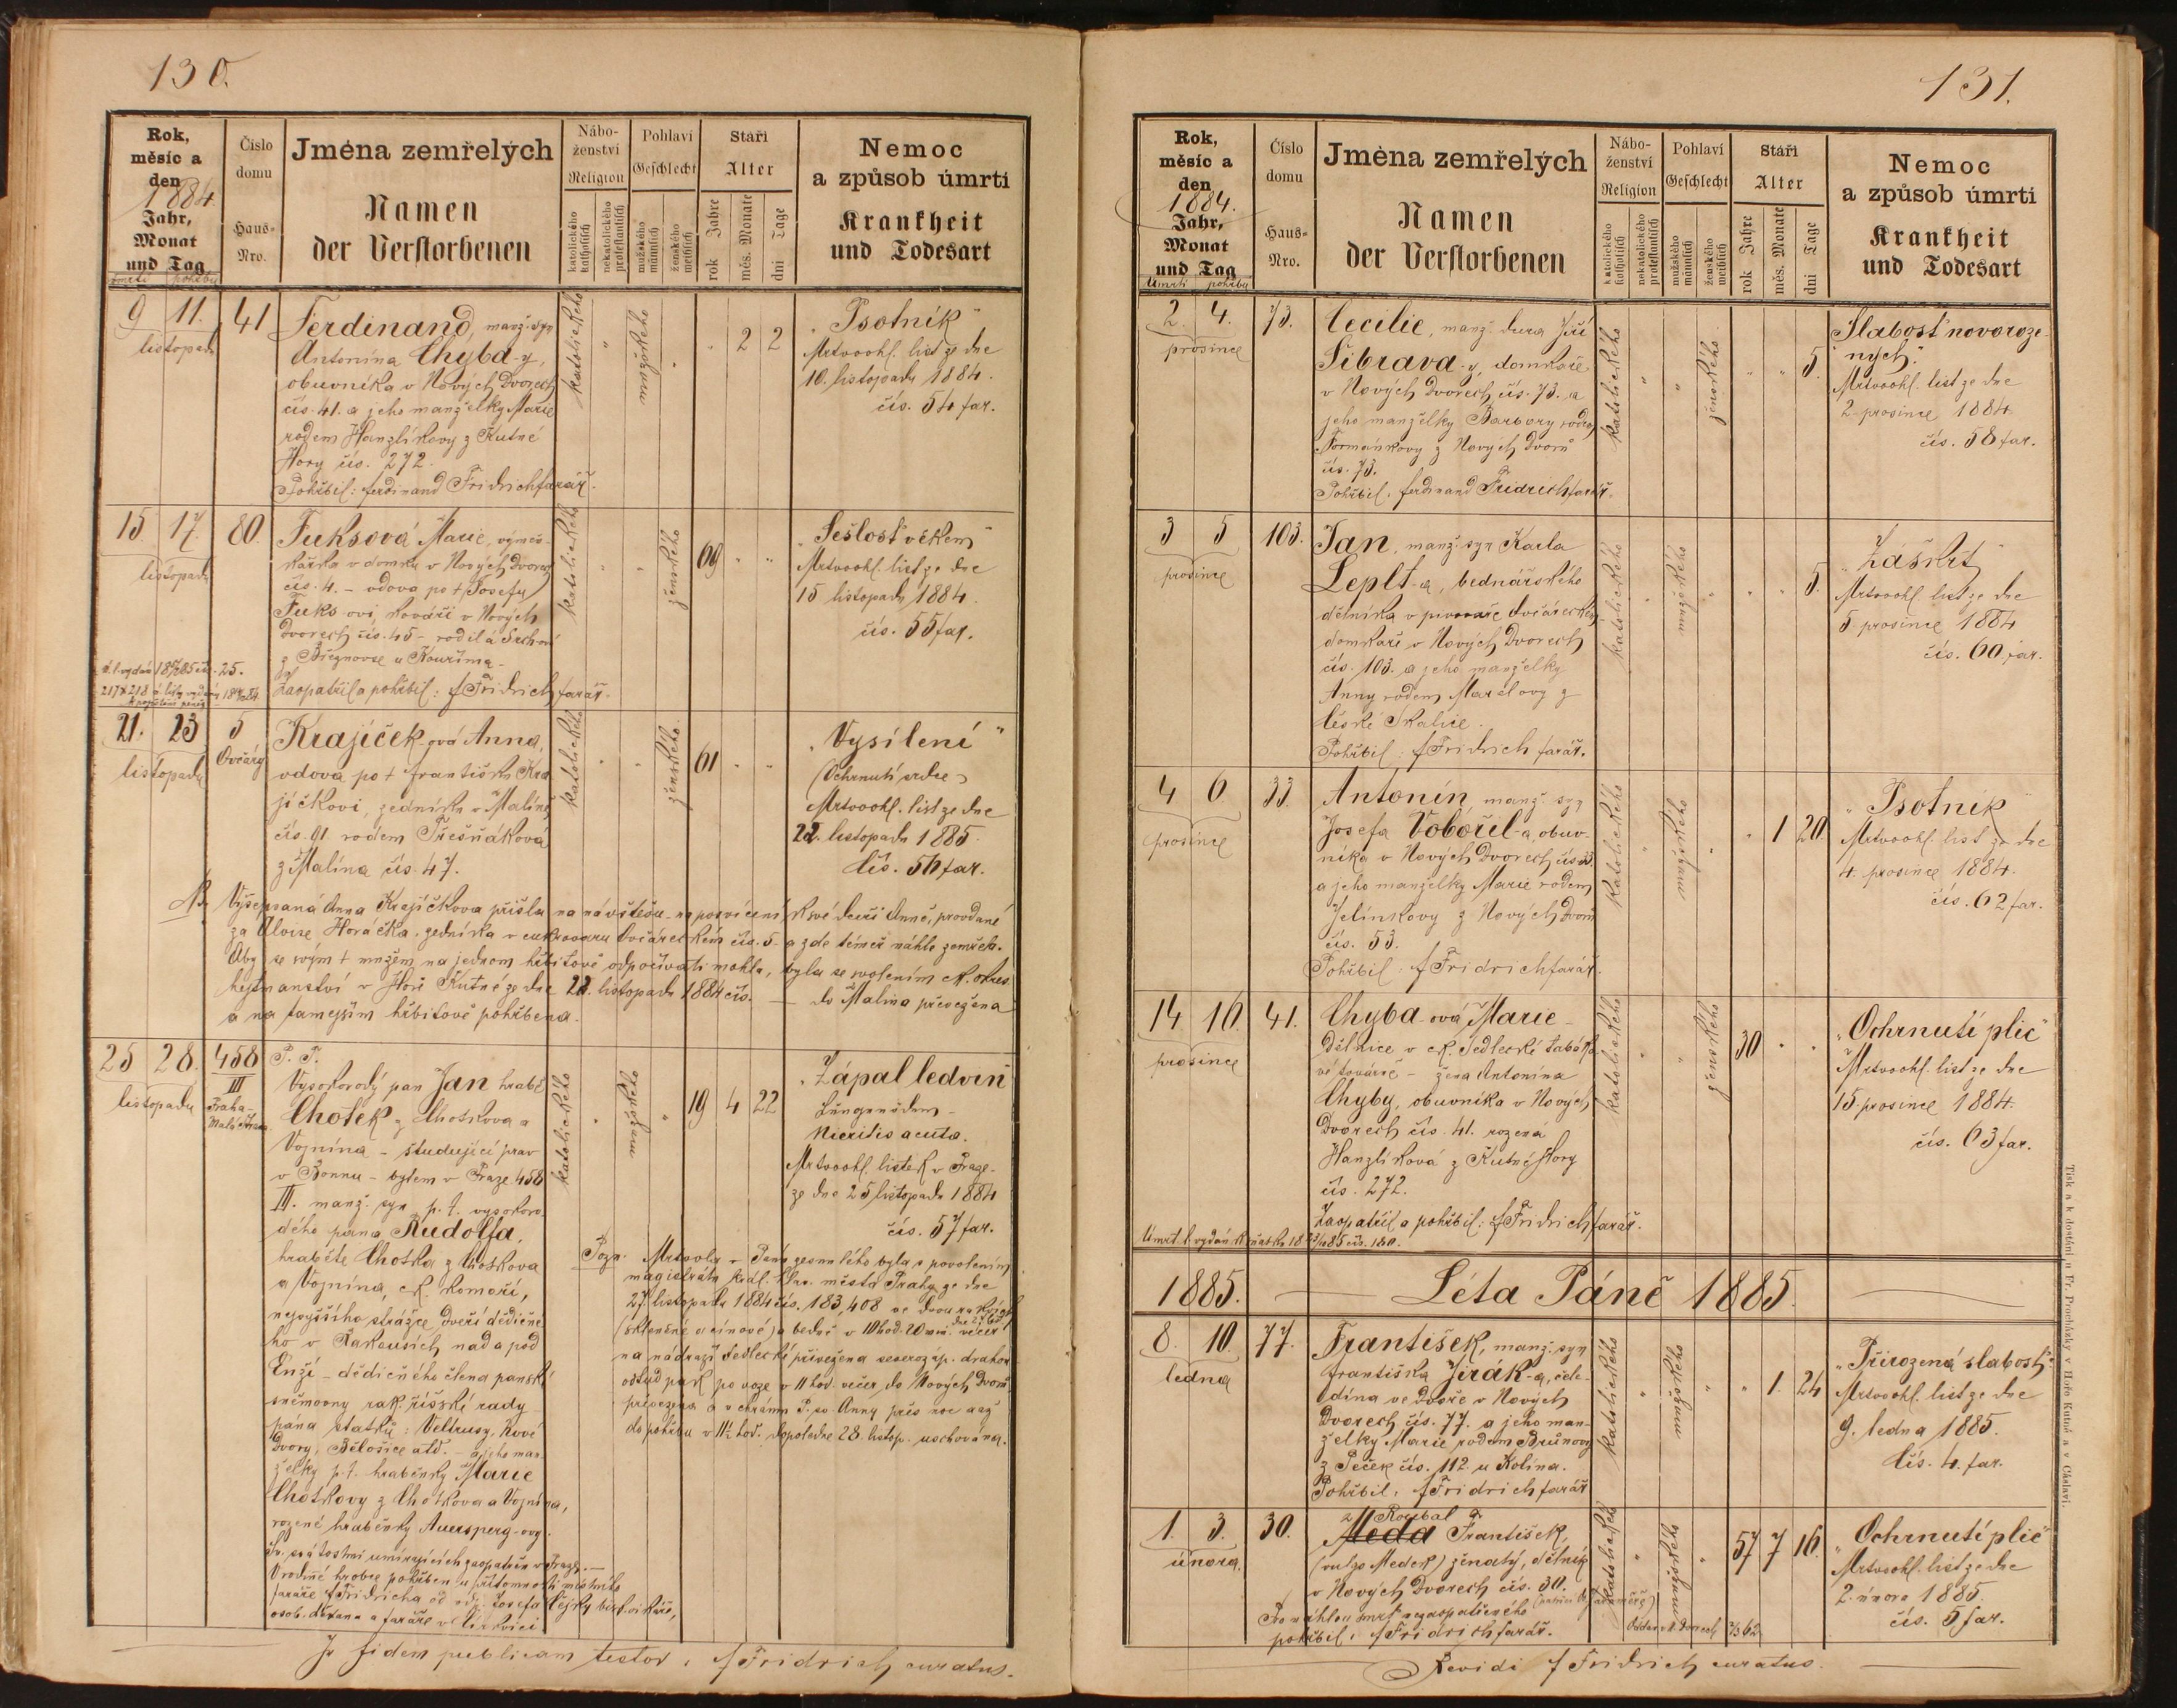 130.
Rok, měsíc a den
1884
Jahr, Monat und Tag
úmrtí pohřbu
Číslo domu
Haus-Nro.
Jména zemřelých
Namen der Verstorbenen
Náboženství
Religion
katolického katholisch
nekatolického protestantisch
Pohlaví
Geschlecht
mužského männlich
ženského weiblich
Stáří
Alter
rok Jahre
měs. Monate
dni Tage
Nemoc a způsob úmrtí
Krankheit und Todesart
9 11. listopadu
41
Ferdinand, manž. syn
Antonína Chyba-y,
obuvníka v Nových Dvorech
čís. 41. a jeho manželky Marie
rodem Hanzlíkovy z Kutné
Hory čís. 272.
Pohřbil: Ferdinand Fridrich farář.
katolického " mužského " " 2 2
„Psotník"
Mrtvoohl. list ze dne
10. listopadu 1884.
čís. 54 far.
15. 17. listopadu
80.
Fuksová Marie, výměn-
kářka v domku v Nových Dvorech
čís. 4. – vdova po † Josefu
Fuks-ovi, kováři v Nových
Dvorech čís. 45 – rodilá
z Břežnovse u Kouřima –
Zaopatřil a pohřbil: f Fridrich farář.
katolického " " ženského 69 " "
„Sešlost věkem"
Mrtvoohl. list ze dne
15 listopadu 1884.
čís. 55 far.
21. 23 listopadu
5 Ovčáry
Krajíček-ová Anna,
vdova po † Františku Kra
jíčkovi, zedníku v Malíně,
čís. 91. rodem Třešňáková
z Malína čís. 47.
katolického " " ženského 61 " "
„Vysílení"
(Ochrnutí srdce)
Mrtvoohl. list ze dne
22. listopadu 1885.
Čís. 56 far.
NB. Výšepsaná Anna Krajíčkova přišla na návštěvu – na posvícení k své dceři Anně, provdané
za Aloise Horáčka, zedníka v cukrovaru Ovčáreckém čís. 5 – a zde téměř náhle zemřela.
Aby se svým † mužem na jednom hřbitově odpočívati mohla, byla se svolením ck. okres.
hejtmanství v Hoře Kutné ze dne 22. listopadu 1884 čís. — do Malína převezena
a na tamějším hřbitově pohřbena.
25 28. listopadu
458 III Praha – Malá Strana
P. T.
Vysokorodý pan Jan hrabě
Chotek z Chotkova a
Vojnína – studující prav
v Bonnu – bytem v Praze 458
III. manž. syn p. t. vysokoro-
dého pana Rudolfa,
hraběte Chotka z Chotkova
a Vojnína, ck. komoří,
nejvyššího strážce dveří dědičné
ho v Rakousích nad a pod
Enží – dědičného člena panské
sněmovny rak. říšské rady
pána statků: Veltrusy, Nové
Dvory, Bělošice atd. – a jeho man-
želky p. t. hraběnky Marie
Chotkovy z Chotkova a Vojnína,
rozené hraběnky Auersperg-ovy.
Sv. svátostmi umírajících zaopatřen v Praze. —
V rodinné hrobce pohřben u přítomnosti místního
faráře f Fridricha od vdp. Josefa Čejky bisk. vikáře,
osob. děkana a faráře v Církvici
katolického " mužského " 19 4 22
„Zápal ledvin"
Lungenödem –
Nieritis acuta.
Mrtvoohl. lístek v Praze –
ze dne 25 listopadu 1884
čís. 57 far.
Pozn. Mrtvola v Pánu zesnulého byla s povolením
magistrátu král. hlav. města Prahy ze dne
27. listopadu 1884 čís. 183,408 ve dvou rakvích
(skleněné a cínové) a bedně v 10 hod. 20 min. večer
na nádraží Sedlecké přivežena severozáp. drahou
odtud pak po voze v 11 hod. večer do Nových Dvorů
převezena a v chrámu P. sv. Anny přes noc až
do pohřbu v 11½ hod. dopoledne 28 listop. uschována.
In fidem publicam testor: f Fridrich curatus.
131.
Rok, měsíc a den
1884.
Jahr, Monat und Tag
úmrtí pohřbu
Číslo domu
Haus-Nro.
Jména zemřelých
Namen der Verstorbenen
Náboženství
Religion
katolického katholisch
nekatolického protestantisch
Pohlaví
Geschlecht
mužského männlich
ženského weiblich
Stáří
Alter
rok Jahre
měs. Monate
dni Tage
Nemoc a způsob úmrtí
Krankheit und Todesart
2. 4. prosince
73.
Cecilie, manž. dcra Jiří
Šibrava-y, domkáře
v Nových Dvorech čís. 73. a
jeho manželky Barbory rodem
Formánkovy z Nových Dvorů
čís. 73.
Pohřbil: Ferdinand Fridrich farář.
katolického " " ženského " " 5
„Slabosť novoroze-
ných".
Mrtvoohl. list ze dne
2. prosince 1884.
čís. 58 far.
3 5 prosince
103.
Jan, manž. syn Karla
Leplt-a, bednářského
dělníka v pivovaře Ovčáreckém
domkaře v Nových Dvorech
čís. 103. a jeho manželky
Anny rodem Marelovy z
České Skalice.
Pohřbil: f Fridrich farář.
katolického " mužského " " " 5.
„Záškrt"
Mrtvoohl. list ze dne
5 prosince 1884
čís. 60 far.
4 6 prosince
33.
Antonín, manž. syn
Josefa Vobořil-a, obuv-
níka v Nových Dvorech čís. 33.
a jeho manželky Marie rodem
Jelínkovy z Nových Dvorů
čís. 53.
Pohřbil: f Fridrich farář.
katolického " mužského " " 1 20.
„Psotník"
Mrtvoohl. list ze dne
4. prosince 1884.
čís. 62 far.
14 16 prosince
41.
Chyba-ová Marie –
Dělnice v ck. Sedlecké tabáko-
vé továrně – žena Antonína
Chyby, obuvníka v Nových
Dvorech čís. 41. rozená
Hanzlíková z Kutné Hory
čís. 272.
Zaopatřil a pohřbil: f Fridrich farář.
katolického " " ženského 30 " "
„Ochrnutí plic"
Mrtvoohl. list ze dne
15. prosince 1884.
čís. 63 far.
1885. — Léta Páně 1885. —
8. 10. ledna
77.
František, manž. syn
Františka Jirák-a, čele-
dína ve dvoře v Nových
Dvorech čís. 77. a jeho man-
želky Marie rodem Brůnovy
z Peček čís. 112. u Kolína.
Pohřbil: f Fridrich farář
katolického " mužského " " 1. 24
„Přirozená slabosť"
Mrtvoohl. list ze dne
9. ledna 1885.
Čís. 4. far.
1. 3. února
30.
Roubal
Meda František,
(vulgo Medek) ženatý, dělník
v Nových Dvorech čís. 30.
Po náhlou smrť nezaopatřeného
pohřbil: f Fridrich farář.
katolického " mužského " 57 7 16.
„Ochrnutí plic"
Mrtvoohl. list ze dne
2. února 1885.
čís. 5 far.
Revidi f Fridrich curatus.
Tisk a k dostání u Fr. Procházky v Hoře Kutné a v Čáslavi.